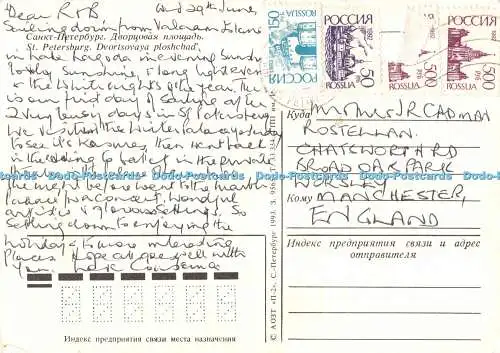 Dear R & B
2nd 29th June,
Sailing down from Valaam Island
Санкт-Петербург. Дворцовая площадь.
St. Petersburg. Dvortsovaya ploshchad'.
in Lake Ladoga in evening Sunshine
lovely Sunshine, & long light eve
& the White nights of the year. This
is our first day of Sailing after
2 very busy days in St Petersburg
We visited the Winter Palace yesterday
to see its treasures, then went back
in the evening to ballet in the private
the night before went to the marble
palace for concert. Wonderful
artistes & glorious Settings. So
Settling down to enjoying the
holiday & Seeing interesting
places. Hope all goes well with
you. Love
Индекс предприятия связи места назначения
© АОЗТ «П-2», С.-Петербург 1993. З. 936
РОССИЯ
ROSSIJA
150
РОССИЯ
ROSSIJA
50
1992
500
РОССИЯ
ROSSIJA
500
1992
Куда
Mr & Mrs J R CADMAN
ROSTELLAN
CHATSWORTH RD
BROAD OAK PARK
WORSLEY
Кому
MANCHESTER,
ENGLAND
Индекс предприятия связи и адрес
отправителя
Dodo-Postcards Dodo-Postcards Dodo-Postcards Dodo-Postcards Dodo-Postcards Dodo-Postcards